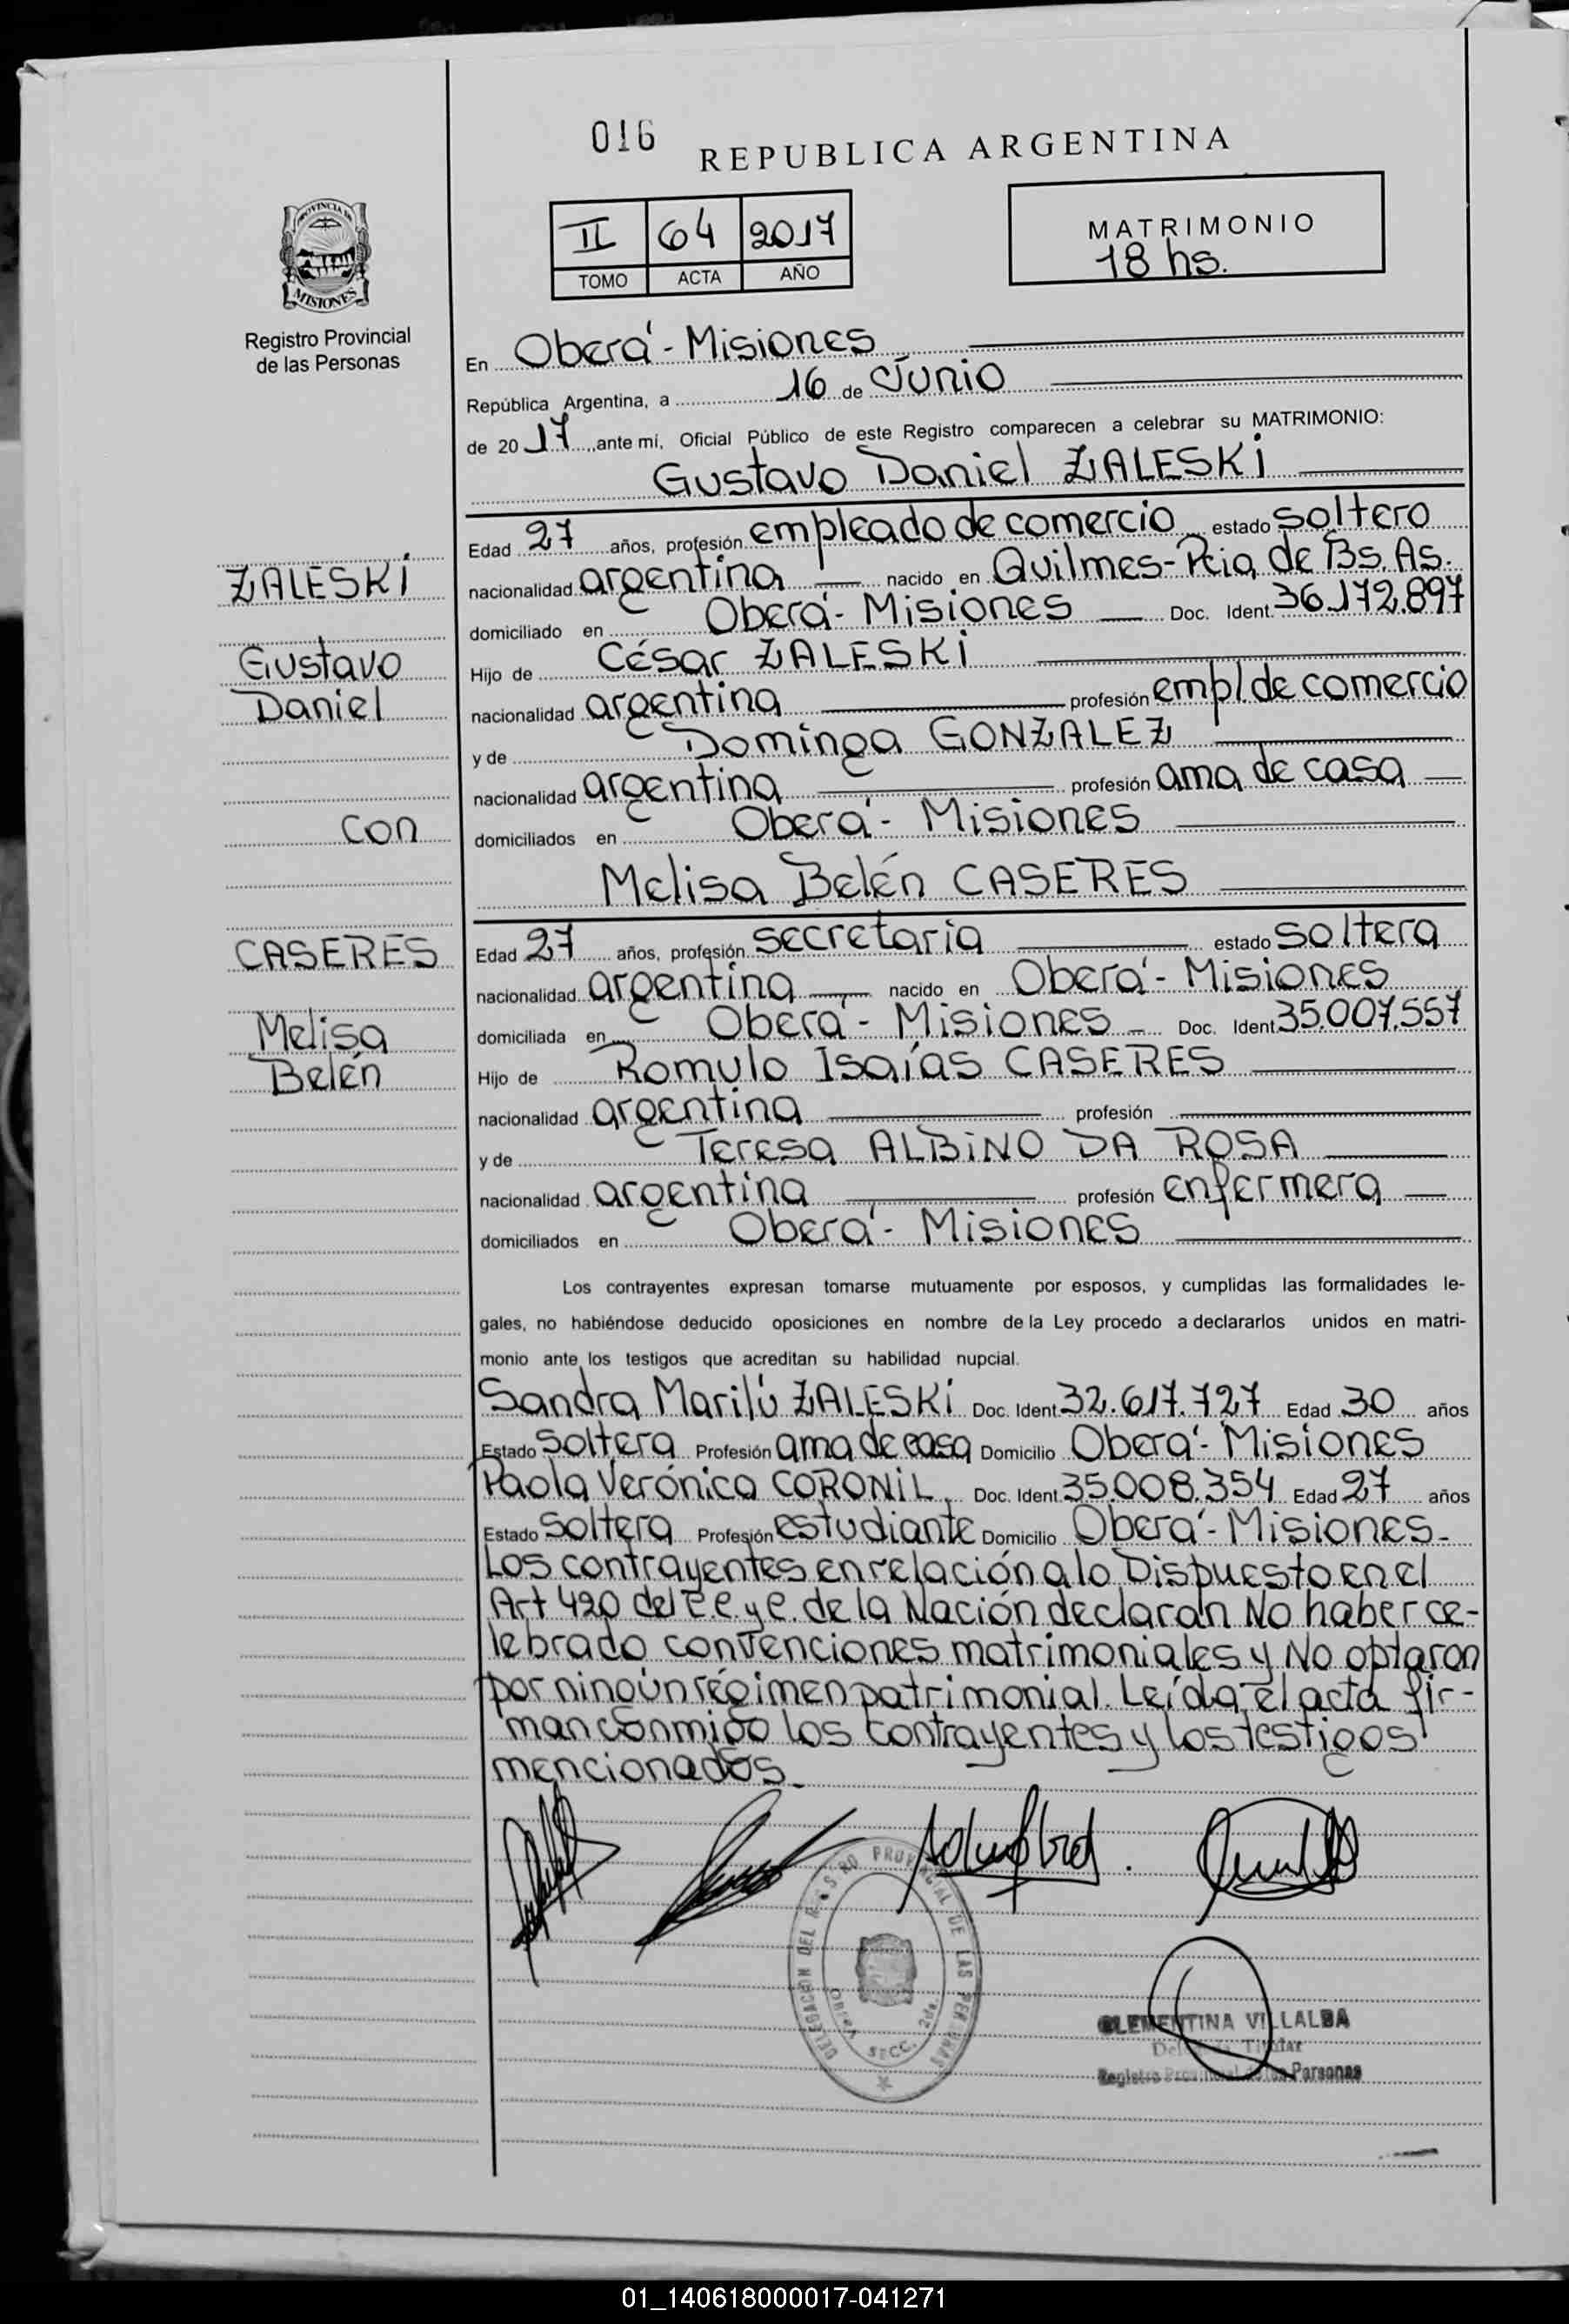 016
REPUBLICA ARGENTINA
II 64 2017
TOMO ACTA AÑO
MATRIMONIO
18 hs.
PROVINCIA DE
MISIONES
Registro Provincial
de las Personas
En Oberá - Misiones
República Argentina, a 16 de Junio
de 20 17 ante mí, Oficial Público de este Registro comparecen a celebrar su MATRIMONIO:
Gustavo Daniel ZALESKI
Edad 27 años, profesión empleado de comercio estado soltero
nacionalidad argentina nacido en Quilmes - Pcia de Bs. As.
domiciliado en Oberá - Misiones Doc. Ident. 36.172.897
Hijo de César ZALESKI
nacionalidad argentina profesión empl. de comercio
y de Dominga GONZALEZ
nacionalidad argentina profesión ama de casa
domiciliados en Oberá - Misiones
ZALESKI
Gustavo
Daniel
con
CASERES
Melisa
Belén
Melisa Belén CASERES
Edad 27 años, profesión secretaria estado soltera
nacionalidad argentina nacido en Oberá - Misiones
domiciliada en Oberá - Misiones Doc. Ident. 35.007.557
Hijo de Romulo Isaías CASERES
nacionalidad argentina profesión
y de Teresa ALBINO DA ROSA
nacionalidad argentina profesión enfermera
domiciliados en Oberá - Misiones
Los contrayentes expresan tomarse mutuamente por esposos, y cumplidas las formalidades le-
gales, no habiéndose deducido oposiciones en nombre de la Ley procedo a declararlos unidos en matri-
monio ante los testigos que acreditan su habilidad nupcial.
Sandra Marilú ZALESKI Doc. Ident. 32.617.727 Edad 30 años
Estado soltera Profesión ama de casa Domicilio Oberá - Misiones
Paola Verónica CORONIL Doc. Ident. 35.008.354 Edad 27 años
Estado soltera Profesión estudiante Domicilio Oberá - Misiones-
Los contrayentes en relación a lo Dispuesto en el
Art 420 del C.C. y C. de la Nación declaran No haber ce-
lebrado convenciones matrimoniales y No optaron
por ningún régimen patrimonial. Leída el acta fir-
man conmigo los contrayentes y los testigos
mencionados.
DELEGACION DEL REGISTRO PROVINCIAL DE LAS PERSONAS
SECC. 2da.
CLEMENTINA VILLALBA
Titular
Registro Provincial de las Personas
01_140618000017-041271